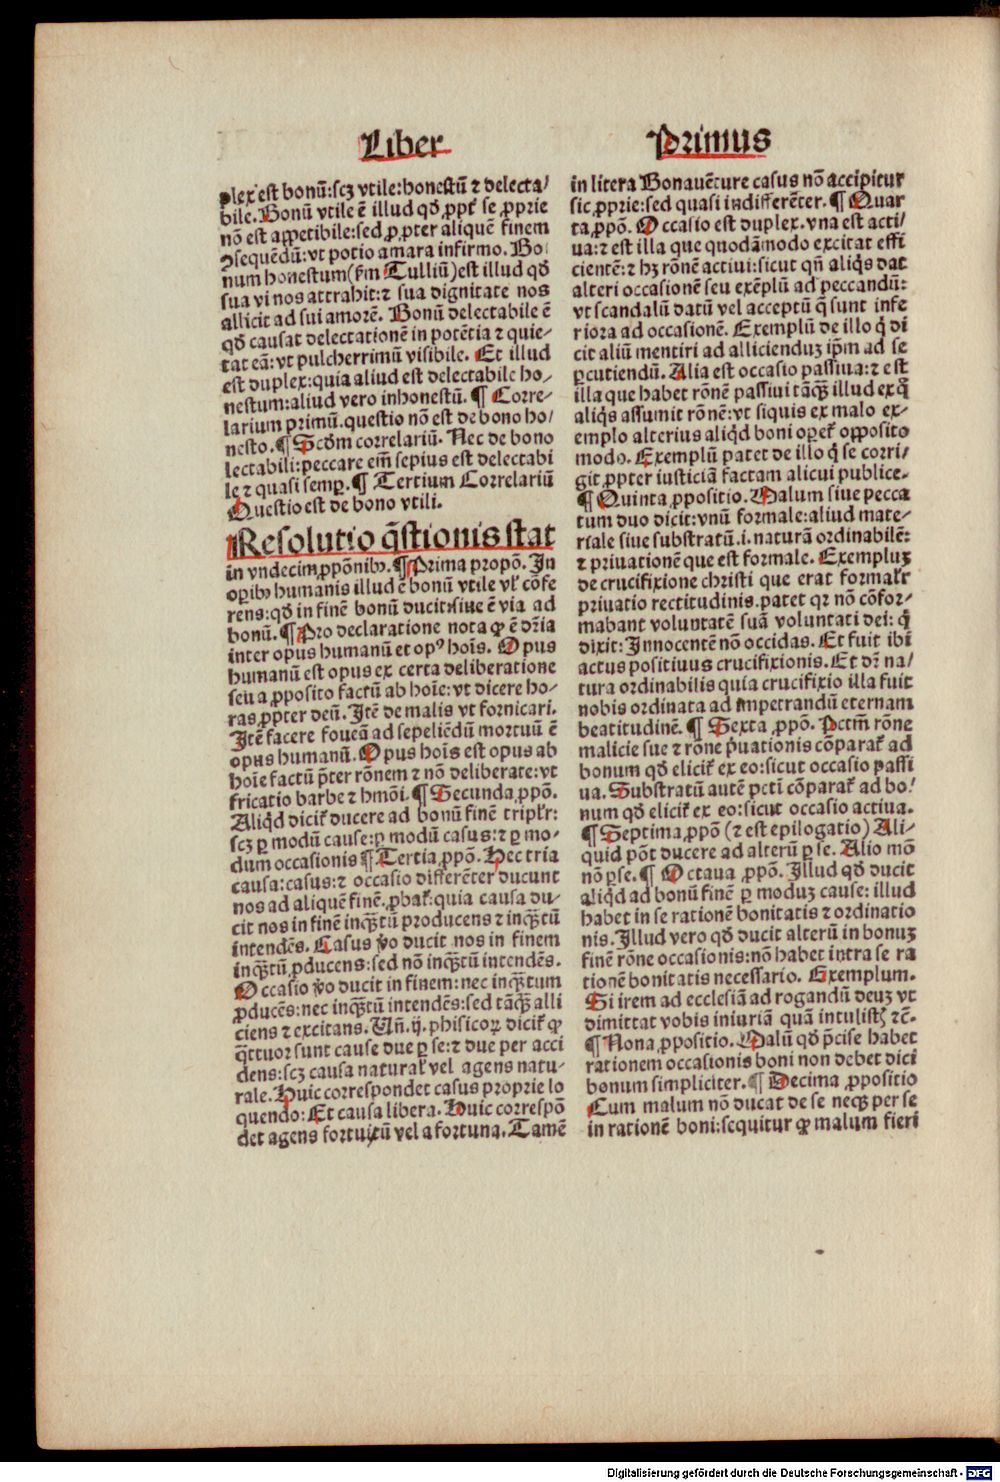 Liber Primus
plex est bonū:scꝫ vtile:honestū ⁊ delecta/
bile. Bonū vtile ē illud qđ ꝓpt̄ se ꝓprie
nō est appetibile:sed ꝓpter aliquē finem
ꝯsequēdū:vt potio amara infirmo. Bo
num honestum(ẜm Tulliū)est illud qđ
sua vi nos attrahit:⁊ sua dignitate nos
allicit ad sui amorē. Bonū delectabile ē
qđ causat delectationē in potētia ⁊ quie-
tat eā:vt pulcherrimū visibile. Et illud
est duplex:quia aliud est delectabile ho/
nestum:aliud vero inhonestū. ¶ Corre-
larium primū.questio nō est de bono ho/
nesto. ¶ Scđm correlariū. Nec de bono
lectabili:peccare em̄ sepius est delectabi
le ⁊ quasi semꝑ. ¶ Tertium Correlariū
Questio est de bono vtili.
Resolutio q̄stionis stat
in vndecim ꝓpōnibꝰ. ¶ Prima propō. In
oꝑibꝰ humanis illud ē bonū vtile vl̄ cōfe
rens:qđ in finē bonū ducit:siue ē via ad
bonū. ¶ Pro declaratione nota ꝙ ē dr̄ia
inter opus humanū et opꝰ hoīs. Opus
humanū est opus ex certa deliberatione
seu a ꝓposito factū ab hoīe:vt dicere ho-
ras ꝓpter deū. Itē de malis vt fornicari.
Itē facere foueā ad sepeliēdū mortuū ē
opus humanū. Opus hoīs est opus ab
hoīe factū p̄ter rōnem ⁊ nō deliberate:vt
fricatio barbe ⁊ hmōi. ¶ Secunda ꝓpō.
Aliqd̄ dicit̄ ducere ad bonū finē triplr̄:
scꝫ ꝑ modū cause:ꝑ modū casus:⁊ ꝑ mo-
dum occasionis ¶ Tertia ꝓpō. Hec tria
causa:casus:⁊ occasio differēter ducunt
nos ad aliquē finē. ꝓbat̄:quia causa du-
cit nos in finē inqꝫtū producens ⁊ inqꝫtū
intendēs. Casus v̄o ducit nos in finem
inqꝫtū ꝓducens:sed nō inqꝫtū intendēs.
Occasio v̄o ducit in finem:nec inqꝫtum
ꝓducēs:nec inqꝫtū intendēs:sed tāqꝫ alli
ciens ⁊ excitans. Un̄.ij. phisicoꝝ dicit̄ ꝙ
q̄ttuor sunt cause due ꝑ se:⁊ due per acci
dens:scꝫ causa natural̄ vel agens natu-
rale. Huic correspondet casus proprie lo
quendo: Et causa libera. Huic correspō
det agens fortuitū vel a fortuna. Tamē
in litera Bonauēture casus nō accipitur
sic ꝓprie:sed quasi indifferēter. ¶ Quar
ta ꝓpō. Occasio est duplex. vna est acti/
ua:⁊ est illa que quodāmodo excitat effi
cientē:⁊ hꝫ rōnē actiui:sicut qn̄ aliq̇s dat
alteri occasionē seu exēplū ad peccandū:
vt scandalū datū vel acceptū q̄ sunt infe
riora ad occasionē. Exemplū de illo q̇ di
cit aliū mentiri ad allicienduꝫ ip̄m ad se
ꝑcutiendū. Alia est occasio passiua:⁊ est
illa que habet rōnē passiui tāqꝫ illud ex q̄
aliq̇s assumit rōnē:vt siquis ex malo ex-
emplo alterius aliqd̄ boni oꝑet̄ opposito
modo. Exemplū patet de illo q̇ se corri/
git ꝓpter iusticiā factam alicui publice-
¶ Quinta ꝓpositio. Malum siue pecca
tum duo dicit:vnū formale:aliud mate/
riale siue substratū.i.naturā ordinabilē:
⁊ priuationē que est formale. Exempluꝫ
de crucifixione christi que erat formalr̄
priuatio rectitudinis.patet qꝛ nō cōfor/
mabant voluntatē suā voluntati dei: q̇
dixit:Innocentē nō occidas. Et fuit ibi
actus positiuus crucifixionis. Et dr̄ na/
tura ordinabilis quia crucifixio illa fuit
nobis ordinata ad impetrandū eternam
beatitudinē. ¶ Sexta ꝓpō. Pctm̄ rōne
malicie sue ⁊ rōne p̄uationis cōparat̄ ad
bonum qđ elicit̄ ex eo:sicut occasio passi
ua. Substratū autē pcti cōparat̄ ad bo/
num qđ elicit̄ ex eo:sicut occasio actiua.
¶ Septima ꝓpō (⁊ est epilogatio) Ali/
quid pōt ducere ad alterū ꝑ se. Alio mō
nō ꝑse. ¶ Octaua ꝓpō. Illud qđ ducit
aliqd̄ ad bonū finē ꝑ moduꝫ cause: illud
habet in se rationē bonitatis ⁊ ordinatio
nis. Illud vero qđ ducit alterū in bonuꝫ
finē rōne occasionis:nō habet intra se ra
tionē bonitatis necessario. Exemplum.
Si irem ad ecclesiā ad rogandū deuꝫ vt
dimittat vobis iniuriā quā intulistꝭ ⁊c̄.
¶ Nona ꝓpositio. Malū qđ p̄cise habet
rationem occasionis boni non debet dici
bonum simpliciter. ¶ Decima ꝓpositio
Cum malum nō ducat de se neqꝫ per se
in rationē boni:sequitur ꝙ malum fieri
Digitalisierung gefördert durch die Deutsche Forschungsgemeinschaft - DFG